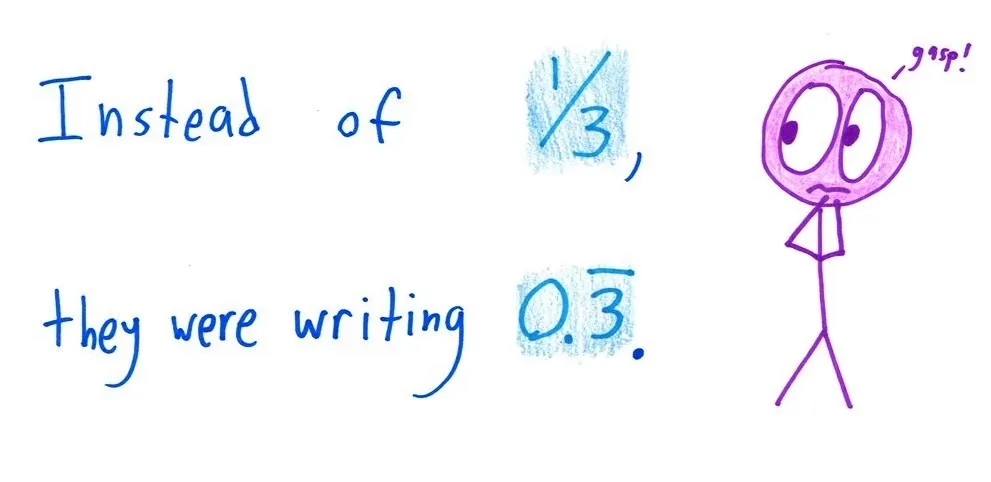 Instead of 1/3,
they were writing 0.3̅.
gasp!